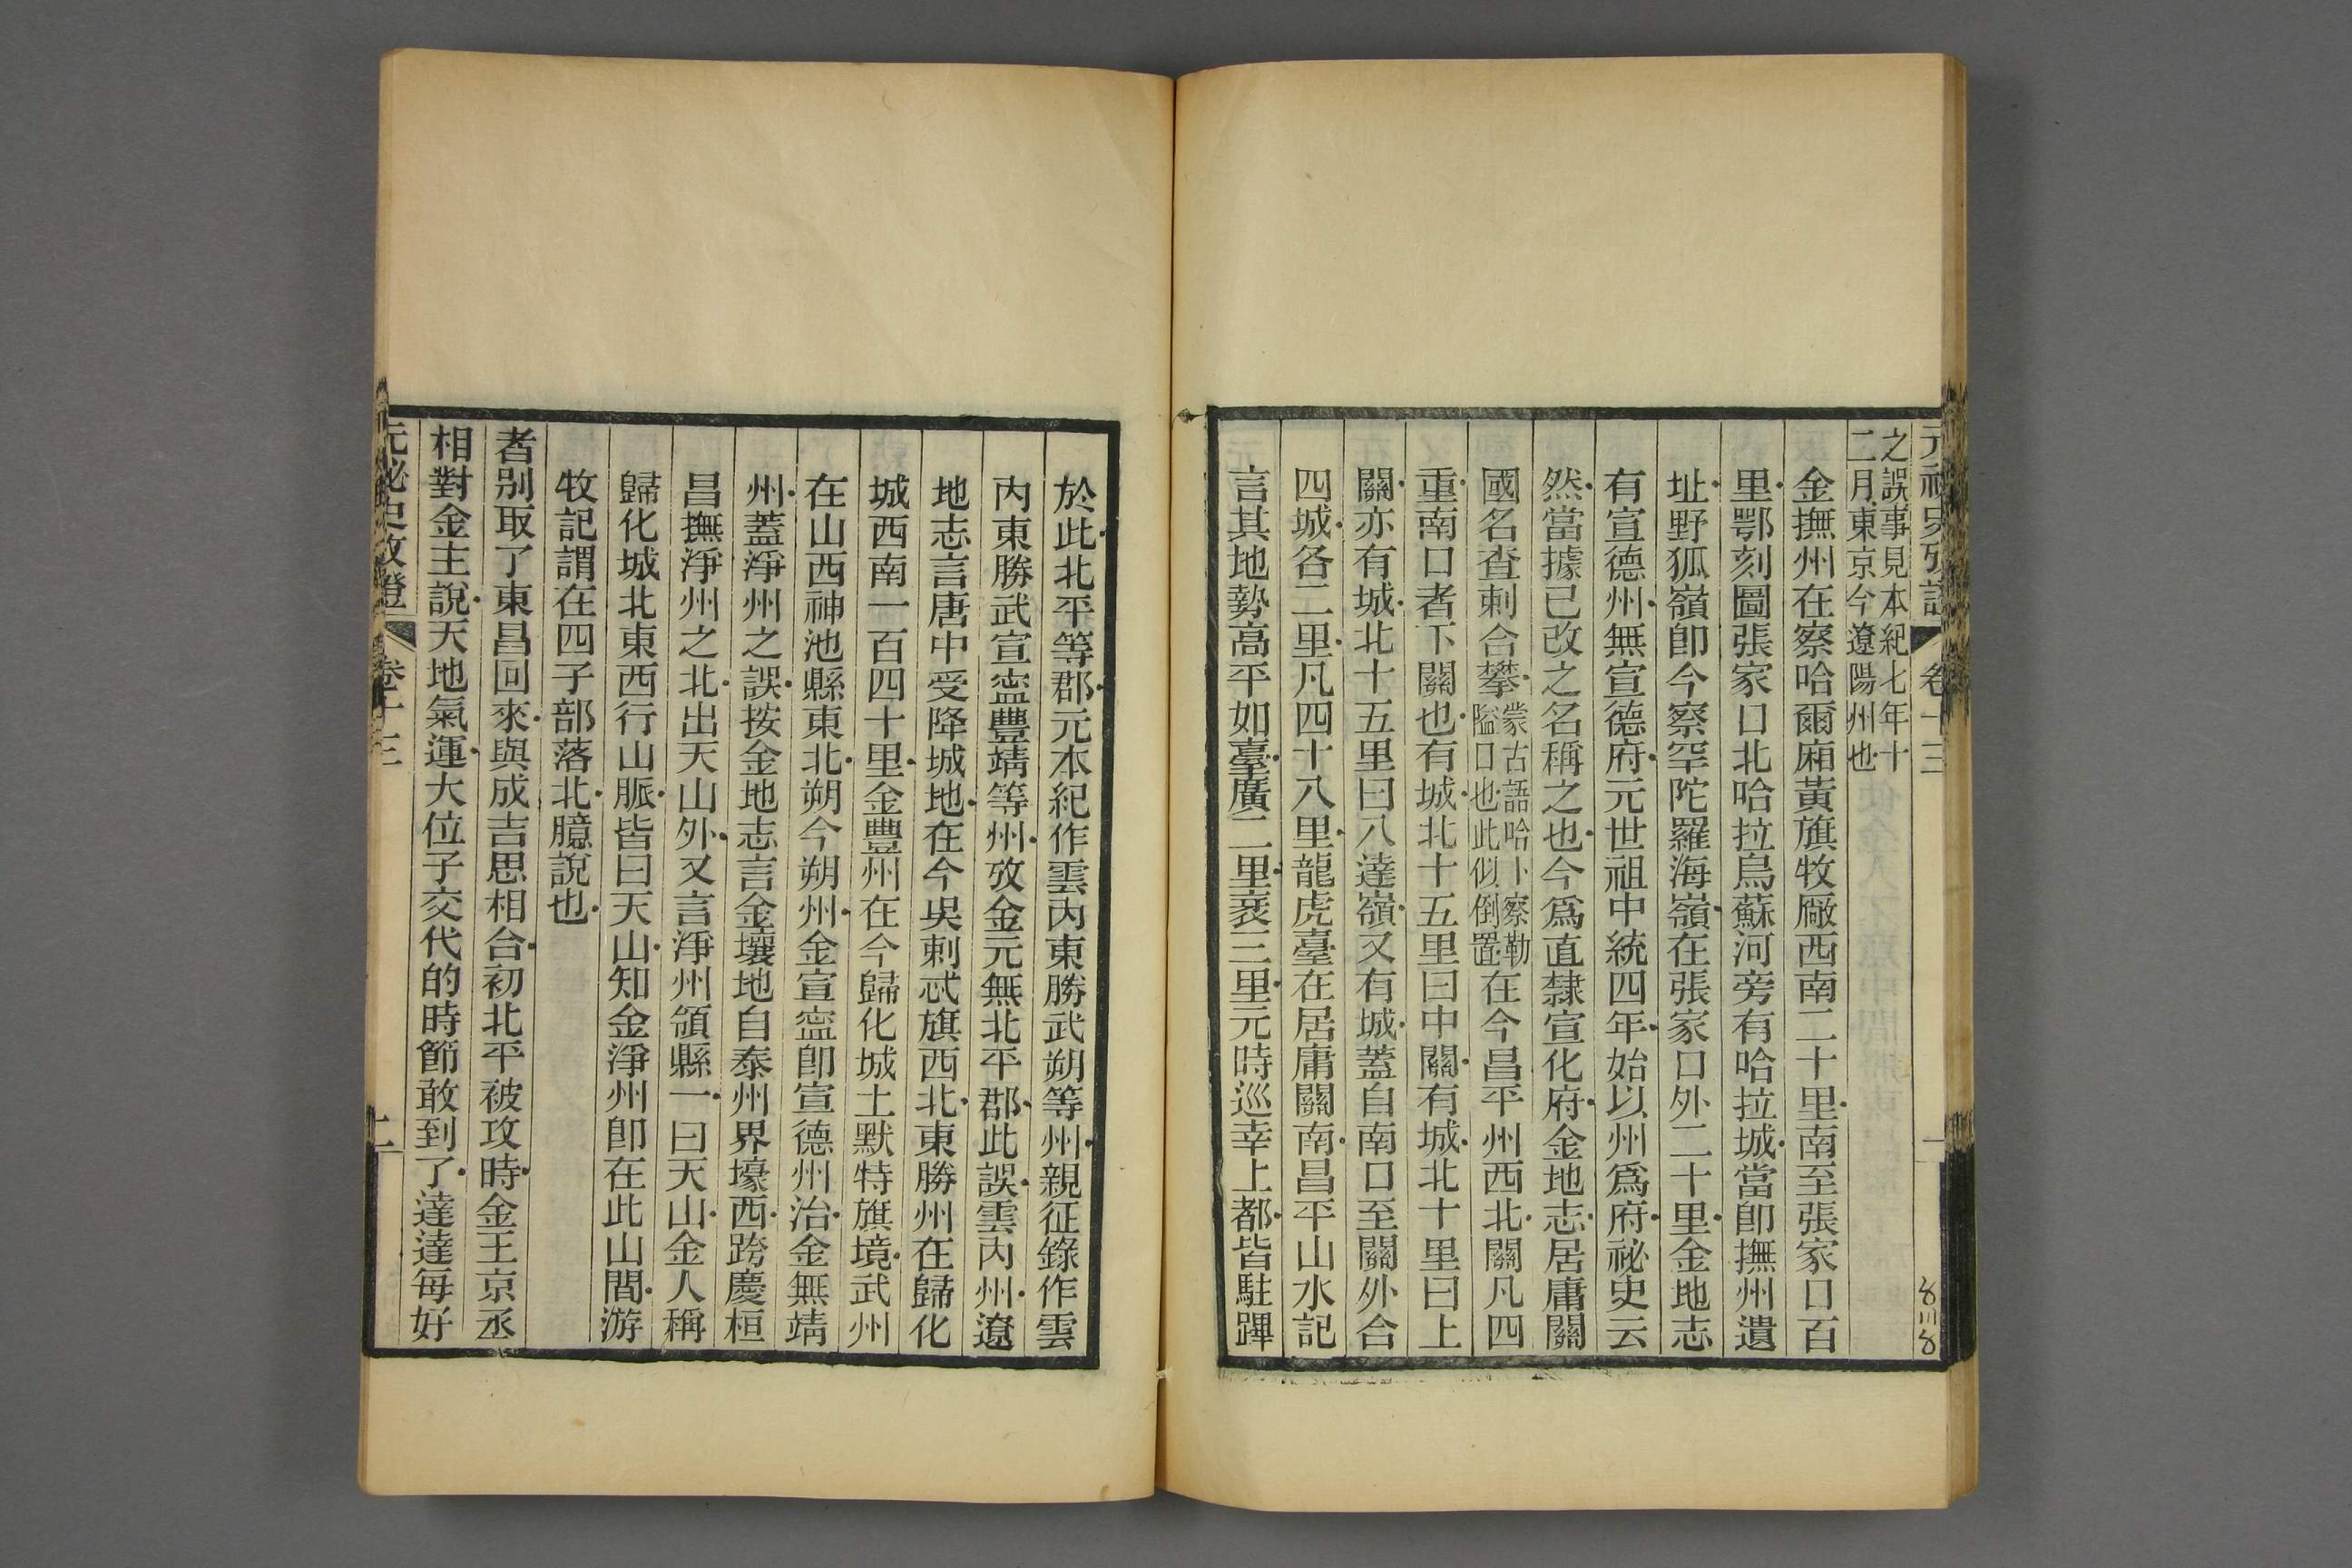 元祕史攷證 卷十三 一
之誤事見本紀七年十
二月東京今遼陽州也
金撫州在察哈爾廂黃旗牧廠西南二十里南至張家口百
里鄂刻圖張家口北哈拉烏蘇河旁有哈拉城當卽撫州遺
址野狐嶺卽今察罕陀羅海嶺在張家口外二十里金地志
有宣德州無宣德府元世祖中統四年始以州爲府祕史云
然當據已改之名稱之也今爲直隸宣化府金地志居庸關
國名查剌合攀蒙古語哈卜察勒隘口也此似倒置在今昌平州西北關凡四
重南口者下關也有城北十五里曰中關有城北十里曰上
關亦有城北十五里曰八達嶺又有城蓋自南口至關外合
四城各二里凡四十八里龍虎臺在居庸關南昌平山水記
言其地勢高平如臺廣二里袤三里元時巡幸上都皆駐蹕
於此北平等郡元本紀作雲內東勝武朔等州親征錄作雲
內東勝武宣寍豐靖等州攷金元無北平郡此誤雲內州遼
地志言唐中受降城地在今吳剌忒旗西北東勝州在歸化
城西南一百四十里金豐州在今歸化城土默特旗境武州
在山西神池縣東北朔今朔州金宣寍卽宣德州治金無靖
州蓋淨州之誤按金地志言金壤地自泰州界壕西跨慶桓
昌撫淨州之北出天山外又言淨州領縣一曰天山金人稱
歸化城北東西行山脈皆曰天山知金淨州卽在此山間游
牧記謂在四子部落北臆說也
者別取了東昌回來與成吉思相合初北平被攻時金王京丞
相對金主說天地氣運大位子交代的時節敢到了達達每好
元祕史攷證 卷十三 二